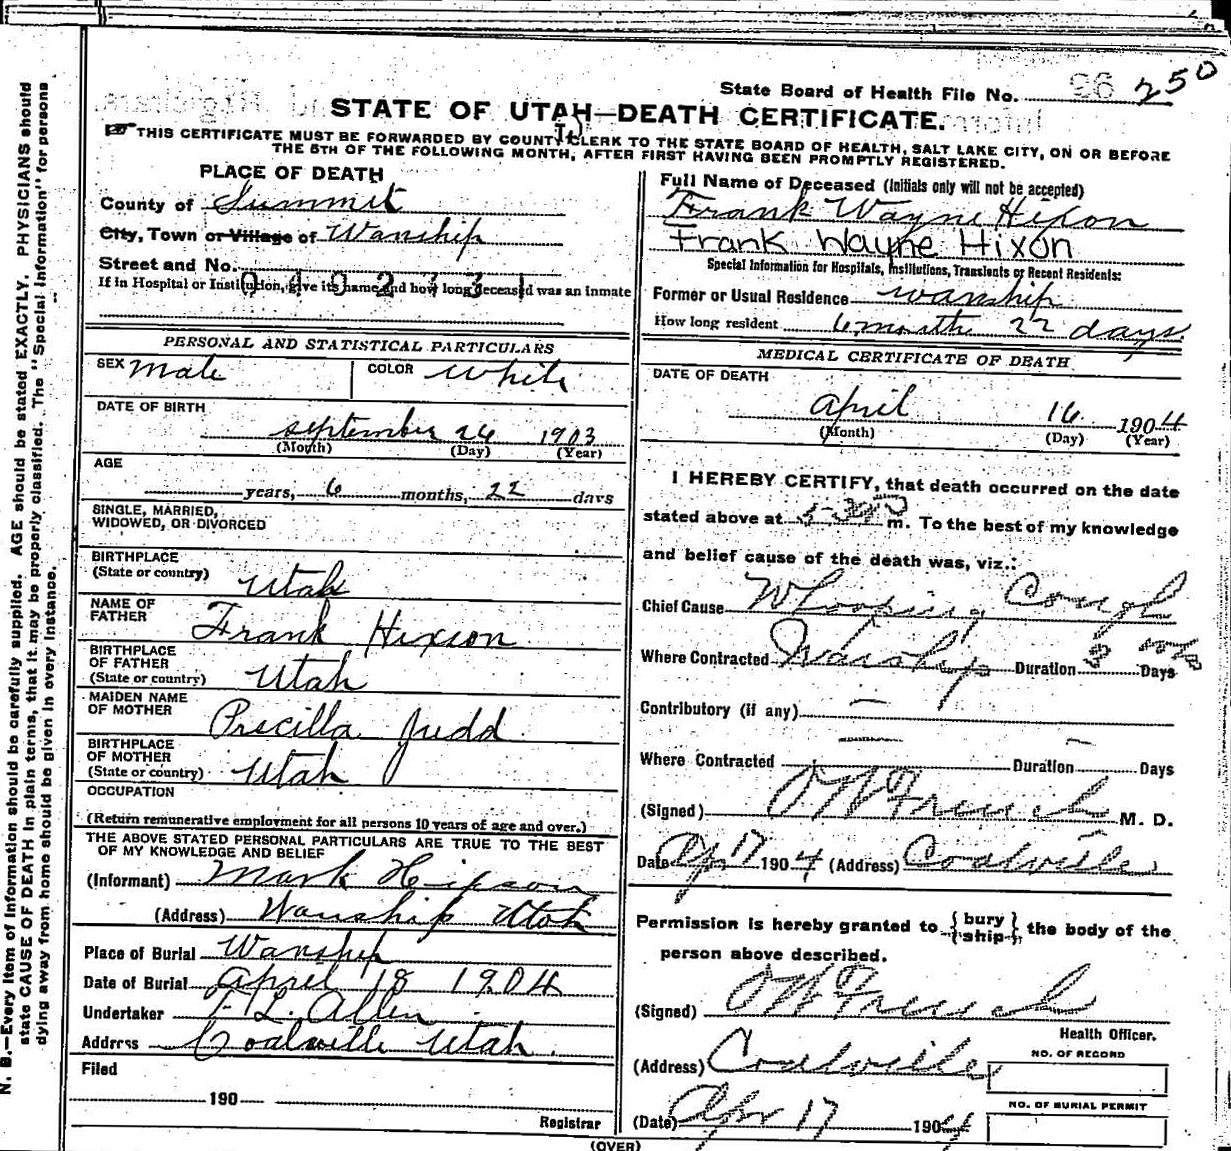 State Board of Health File No. 96 250
STATE OF UTAH—DEATH CERTIFICATE.
THIS CERTIFICATE MUST BE FORWARDED BY COUNTY CLERK TO THE STATE BOARD OF HEALTH, SALT LAKE CITY, ON OR BEFORE
THE 5TH OF THE FOLLOWING MONTH, AFTER FIRST HAVING BEEN PROMPTLY REGISTERED.
PLACE OF DEATH
County of Summit
City, Town or Village of Wanship
Street and No.
0 4 0 2 3 3 1
If in Hospital or Institution, give its name and how long deceased was an inmate
PERSONAL AND STATISTICAL PARTICULARS
SEX male COLOR White
DATE OF BIRTH
september 24 1903
(Month) (Day) (Year)
AGE
years, 6 months, 22 days
SINGLE, MARRIED,
WIDOWED, OR DIVORCED
BIRTHPLACE
(State or country) Utah
NAME OF
FATHER Frank Hixson
BIRTHPLACE
OF FATHER
(State or country) Utah
MAIDEN NAME
OF MOTHER Precilla Judd
BIRTHPLACE
OF MOTHER
(State or country) Utah
OCCUPATION
(Return remunerative employment for all persons 10 years of age and over.)
THE ABOVE STATED PERSONAL PARTICULARS ARE TRUE TO THE BEST
OF MY KNOWLEDGE AND BELIEF
(Informant) Mark Hixson
(Address) Wanship Utah
Place of Burial Wanship
Date of Burial april 18 1904
Undertaker T. L. Allen
Address Coalville Utah.
Filed
190
Registrar
Full Name of Deceased (Initials only will not be accepted)
Frank Wayne Hixon
Frank Wayne Hixon
Special Information for Hospitals, Institutions, Transients or Recent Residents:
Former or Usual Residence wanship
How long resident 6 months 22 days.
MEDICAL CERTIFICATE OF DEATH
DATE OF DEATH
april 16 1904
(Month) (Day) (Year)
I HEREBY CERTIFY, that death occurred on the date
stated above at m. To the best of my knowledge
and belief cause of the death was, viz.:
Chief Cause Whooping Cough
Where Contracted Wanship Duration 3 wks Days
Contributory (if any) —
Where Contracted — Duration — Days
(Signed) O W French M. D.
Date Apr 17 1904 (Address) Coalville
Permission is hereby granted to { bury / ship } the body of the
person above described.
(Signed) O W French
Health Officer.
(Address) Coalville
NO. OF RECORD
NO. OF BURIAL PERMIT
(Date) Apr 17 1904
(OVER)
N. B.—Every item of information should be carefully supplied. AGE should be stated EXACTLY. PHYSICIANS should
state CAUSE OF DEATH in plain terms, that it may be properly classified. The "Special Information" for persons
dying away from home should be given in every instance.